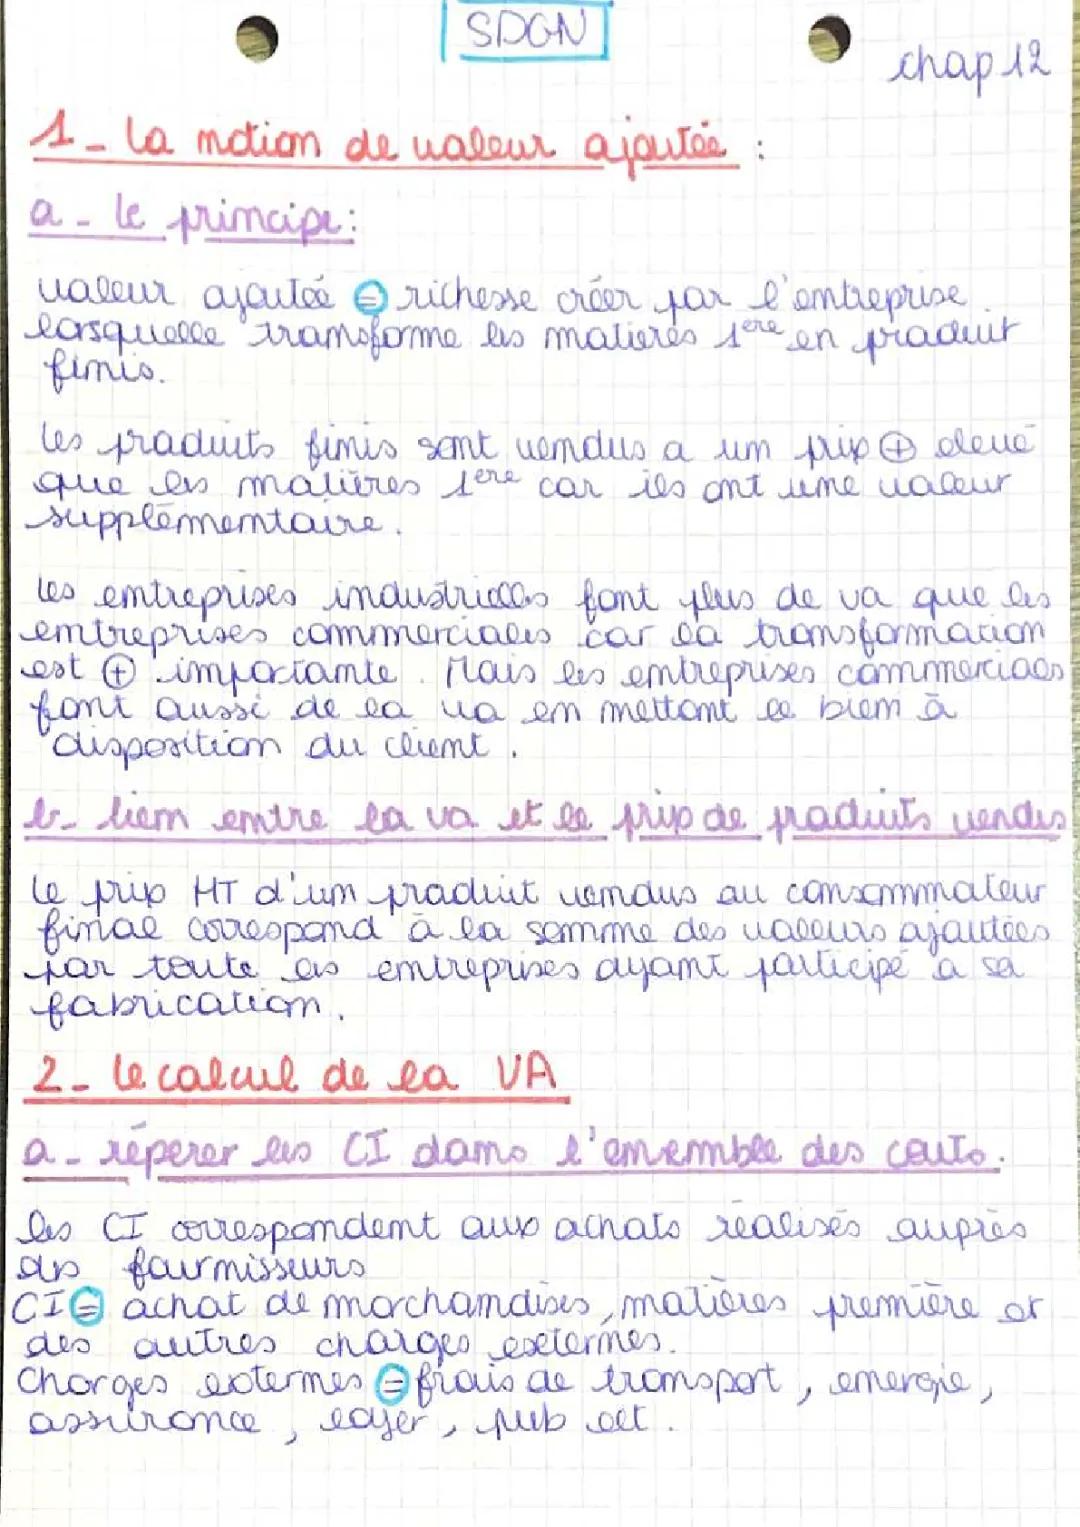 SDGN
chap 12
1- la notion de valeur ajoutée :
a- le principe :
valeur ajoutée = richesse créer par l'entreprise
lorsquelle transforme les matières 1ère en produit
finis.
les produits finis sont vendus a un prix + elevé
que les matières 1ère car ils ont une valeur
supplémentaire.
les entreprises industrielles font plus de va que les
entreprises commerciales car la transformation
est + importante. Mais les entreprises commerciales
font aussi de la va en mettant le bien à
disposition du client.
b- lien entre la va et le prix de produits vendus
le prix HT d'un produit vendus au consommateur
final correspond à la somme des valeurs ajoutées
par toute les entreprises ayant participé a sa
fabrication.
2- le calcul de la VA
a- réperer les CI dans l'ensemble des couts.
les CI correspondent aux achats réalisés auprès
des fournisseurs
CI = achat de marchandises, matières première et
des autres charges externes.
Charges externes = frais de transport, energie,
assurance, loyer, pub ect.